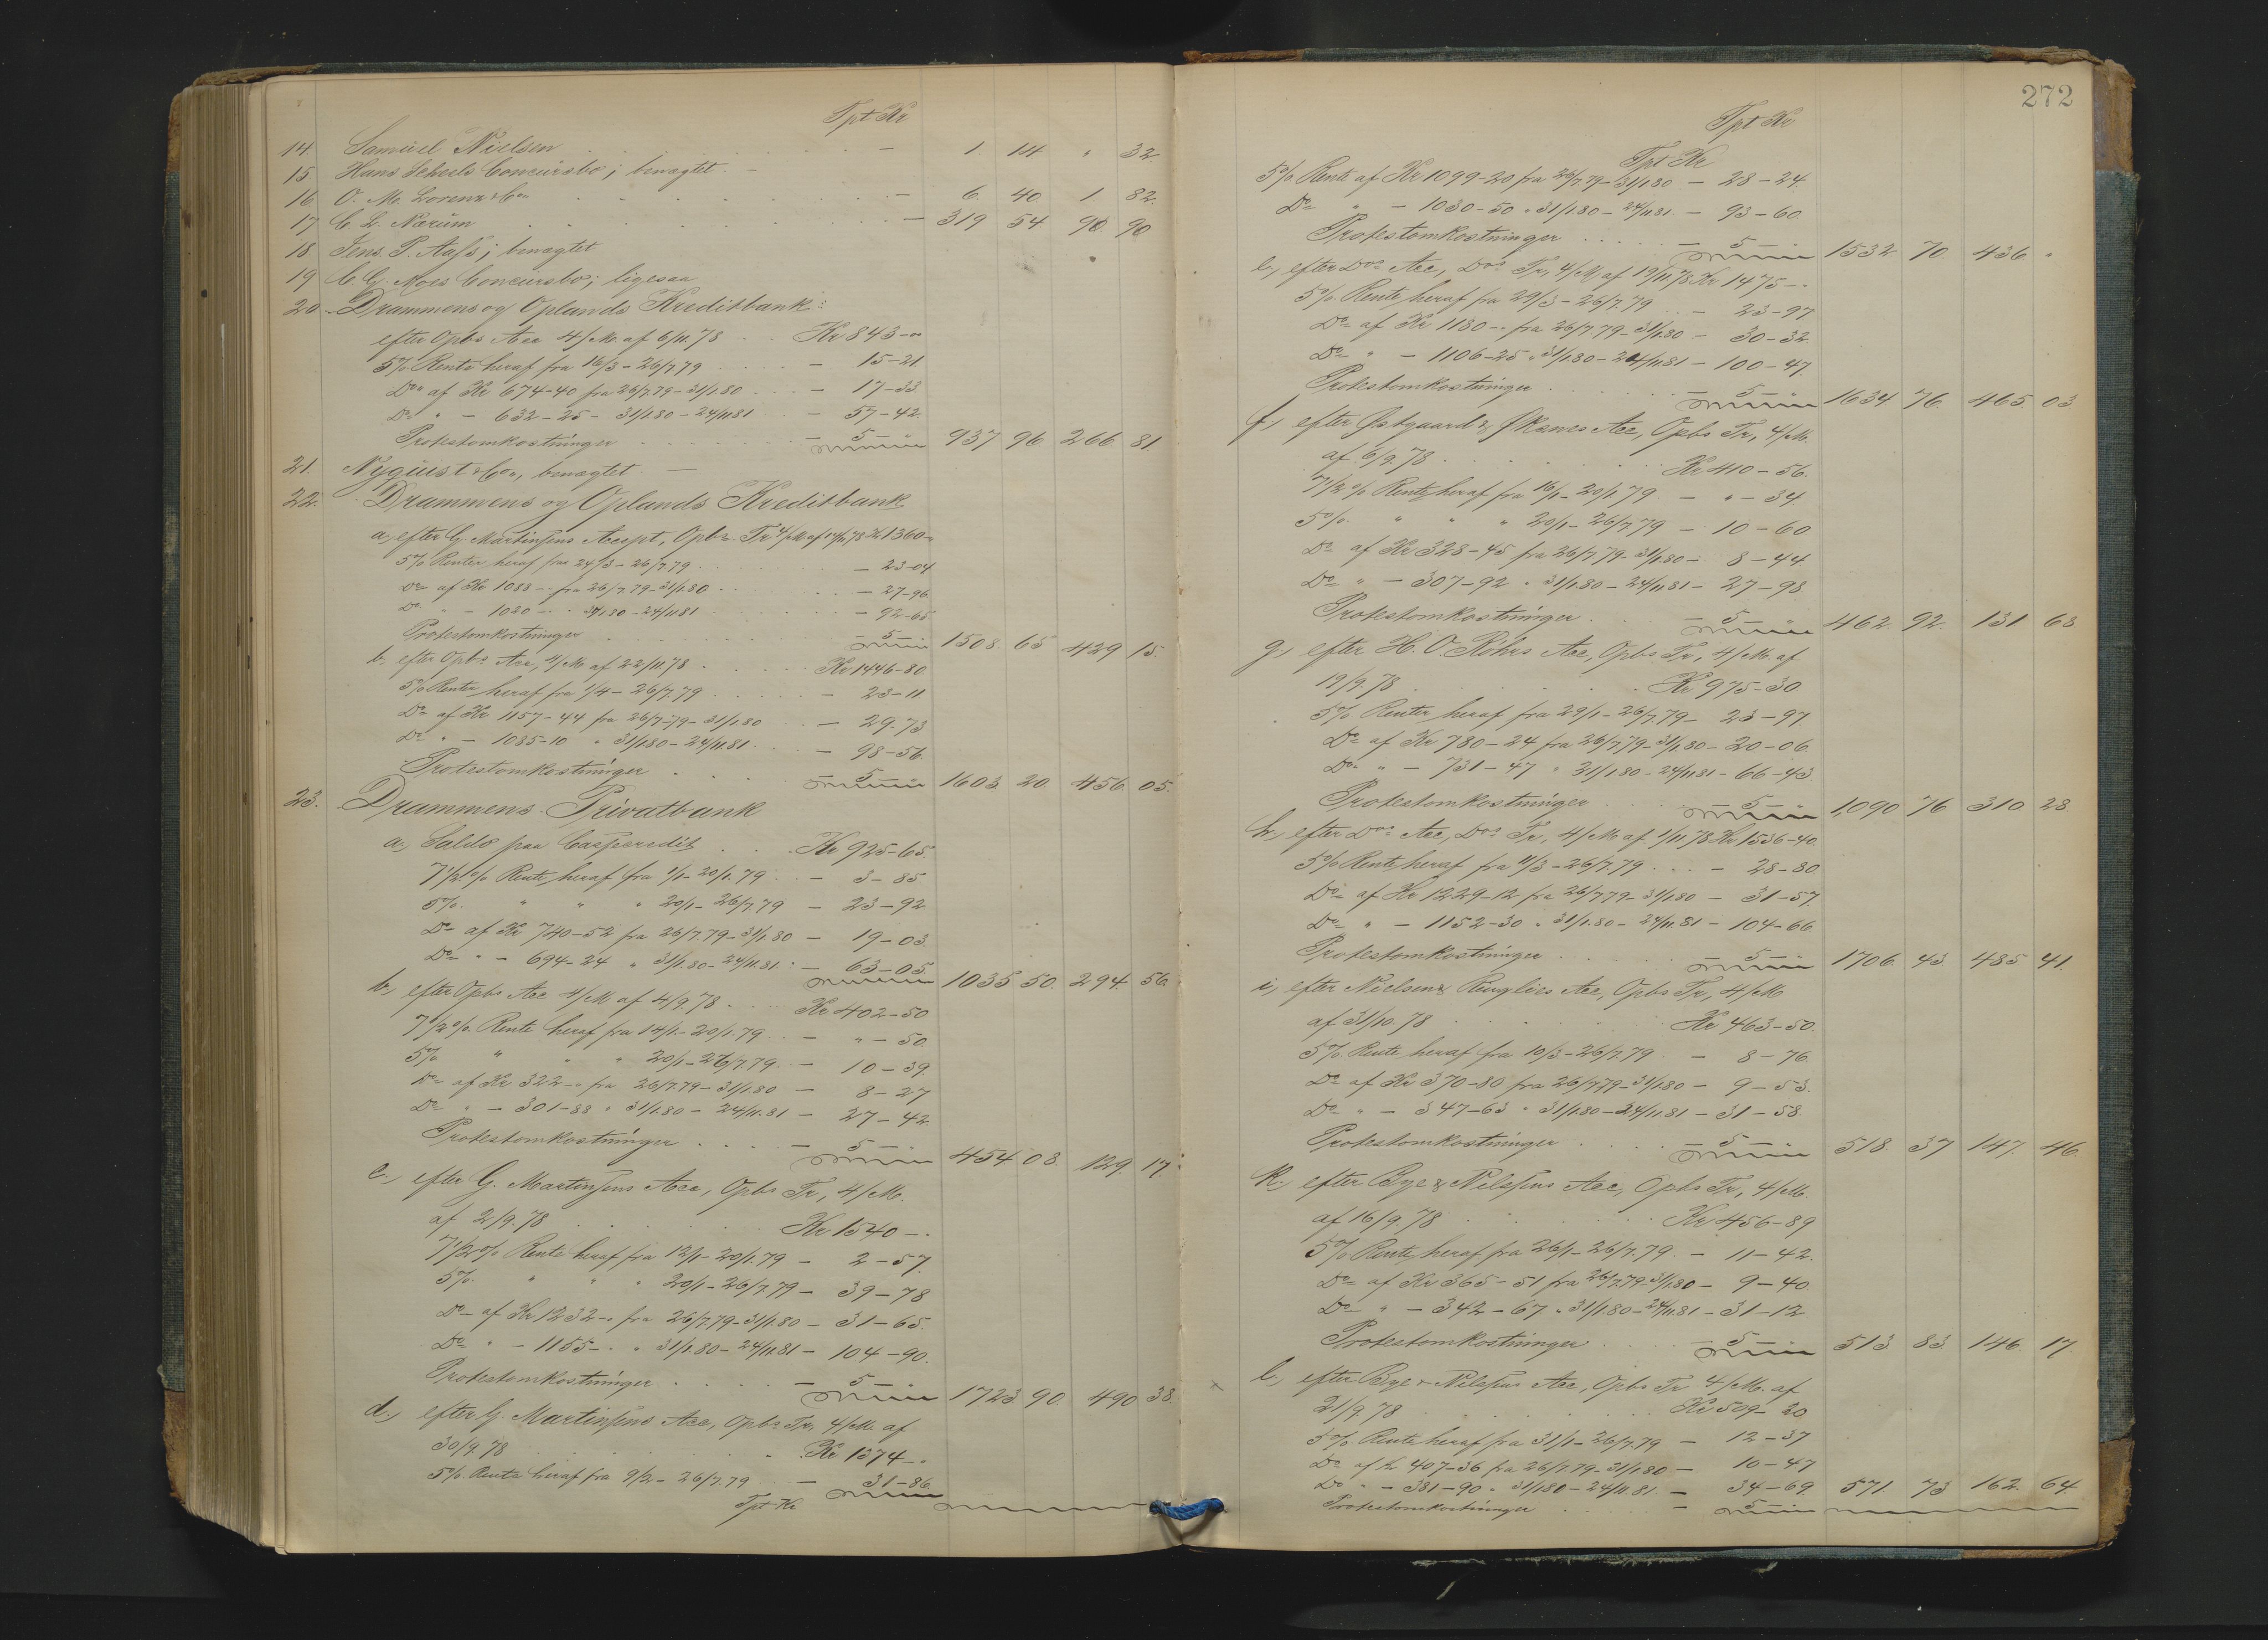 Tpt Kr
14 Samuel Nielsen - 1. 14 " 32.
15 Hans Schuls Concursbo; benægtet. -
16 O. M. Lorenz & Co. - 6. 40 1. 82.
17 C. L. Narum - 319 54 90 90
18. Jens P. Aass; benægtet
19 C. G. Moes Concursbo; ligesaa
20. Drammens og Oplands Kreditbank:
efter Opbs Acc 4/M. af 6/11.78 Kr 843-"
5% Rente heraf fra 16/3-26/7.79 - 15-21
Do af Kr 674-40 fra 26/7.79-31/1.80 - 17-33
Do " - 632-25 - 31/1.80-24/11.81 - 57-42.
Protestomkostninger - 5- " 937 96 266 81.
21. Nyquist & Co, benægtet. -
22. Drammens og Oplands Kreditbank
a., efter G. Martinsens Accept, Opbs. Tr 4/M af 14/11.78 Kr 1360-"
5% Renter heraf fra 24/3-26/7.79 - 23-04
Do af Kr 1088-" fra 26/7.79-31/1.80 - 27-96.
Do " - 1020-" " 31/1.80-24/11.81 - 92-65
Protestomkostninger - 5- " 1508. 65 429 15.
b., efter Opbs Acc, 4/M af 22/11.78 Kr 1446-80.
5% Renter heraf fra 1/4-26/7.79 - 23-11
Do af Kr 1157-44 fra 26/7.79-31/1.80 - 29-73
Do " - 1085-10 " 31/1.80-24/11.81 - 98-56.
Protestomkostninger - 5- " 1603. 20. 456. 05.
23. Drammens Privatbank
a., Saldo paa Cassecredit Kr 925-65.
7½% Rente heraf fra 1/1-20/1.79 - 3-85
5% " " " 20/1-26/7.79 - 23-92
Do af Kr 740-52 fra 26/7.79-31/1.80 - 19-03.
Do " - 694-24 " 31/1.80-24/11.81 - 63-05. 1035 50. 294. 56
b., efter Opbs Acc 4/M af 4/9.78 Kr 402-50
7½% Rente heraf fra 14/1-20/1.79 - "-50.
5% " " " 20/1-26/7.79 - 10-39.
Do af Kr 322-" fra 26/7.79-31/1.80 - 8-27
Do " - 301-88 " 31/1.80-24/11.81 - 27-42.
Protestomkostninger - 5- " 454 08. 129 17.
c., efter G. Martinsens Acc, Opbs Tr, 4/M.
af 2/9.78 Kr 1540-"
7½% Rente heraf fra 12/1-20/1.79 - 2-57.
5% " " " 20/1-26/7.79 - 39-78
Do af Kr 1232-" fra 26/7.79-31/1.80 - 31-65.
Do " - 1155-" " 31/1.80-24/11.81 - 104-90.
Protestomkostninger - 5- " 1723. 90. 490 38.
d., efter G. Martinsens Acc, Opbs Tr, 4/M. af
30/9.78 Kr 1374-"
5% Rente heraf fra 9/2-26/7.79 - 31-86
Tpt Kr
272
Tpt Kr.
Tpt Kr
5% Rente af Kr 1099-20 fra 26/7.79-31/1.80 - 28-24.
Do " - 1030-50 " 31/1.80-24/11.81. - 93-60.
Protestomkostninger - 5- " 1532. 70. 436 "
e., efter Dos Acc, Dos Tr, 4/M af 19/11.78 Kr 1475-"
5% Rente heraf fra 29/3-26/7.79 - 23-97
Do af Kr 1180-" fra 26/7.79-31/1.80 - 30-32.
Do " - 1106-25 " 31/1.80-24/11.81 - 100-47.
Protestomkostninger - 5- " 1634 76. 465. 03
f., efter Østgaard & Økenes Acc, Opbs Tr, 4/M.
af 6/9.78 Kr 410-56.
7½% Rente heraf fra 16/1-20/1.79 - "-34.
5% " " " 20/1-26/7.79 - 10-60
Do af Kr 328-45 fra 26/7.79-31/1.80 - 8-44
Do " - 307-92 " 31/1.80-24/11.81 - 27-98
Protestomkostninger - 5- " 462. 92. 131 68
g., efter H. O. Röhrs Acc, Opbs Tr, 4/M. af
19/9.78 Kr 975-30.
5% Renter heraf fra 29/1-26/7.79 - 23-97.
Do af Kr 780-24 fra 26/7.79-31/1.80 - 20-06.
Do " - 731-47 " 31/1.80-24/11.81 - 66-43
Protestomkostninger - 5- " 1,090 76 310 28.
h., efter Dos Acc, Dos Tr, 4/M af 1/11.78 Kr 1536-40.
5% Rente heraf fra 11/3-26/7.79 - 28-80
Do af Kr 1229-12 fra 26/7.79-31/1.80 - 31-57.
Do " - 1152-30 " 31/1.80-24/11.81 - 104-66
Protestomkostninger - 5- " 1706. 43. 485 41.
i., efter Nielsen & Acc, Opbs Tr, 4/M
af 31/10.78 Kr 463-50.
5% Rente heraf fra 10/3-26/7.79 - 8-76
Do af Kr 370-80 fra 26/7.79-31/1.80 - 9-53.
Do " - 347-63 " 31/1.80-24/11.81 - 31-58
Protestomkostninger - 5- " 518. 37 147. 46.
k., efter Bye & Nilssens Acc, Opbs Tr, 4/M.
af 16/9.78 Kr 456-89
5% Rente heraf fra 26/1-26/7.79. - 11-42.
Do af Kr 365-51 fra 26/7.79-31/1.80 - 9-40
Do " - 342-67 " 31/1.80-24/11.81 - 31-12
Protestomkostninger - 5- " 513 83. 146. 17.
l., efter Bye & Nilssens Acc, Opbs Tr 4/M. af
21/9.78 Kr 509-20
5% Rente heraf fra 31/1-26/7.79 - 12-37
Do af Kr 407-36 fra 26/7.79-31/1.80 - 10-47
Do " - 381-90 " 31/1.80-24/11.81 - 34-69. 571. 73 162. 64.
Protestomkostninger - 5- "